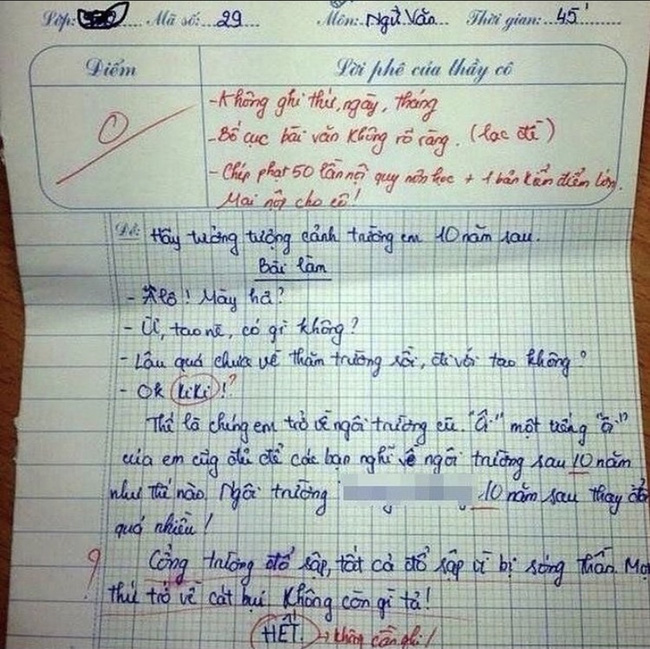 Lớp: Mã số: 29 Môn: Ngữ Văn Thời gian: 45'
Điểm
Lời phê của thầy cô
0
- Không ghi thứ, ngày, tháng
- Bố cục bài văn không rõ ràng. (lạc đề)
- Chép phạt 50 lần nội quy môn học + 1 bản kiểm điểm lớn.
Mai nộp cho cô!
Đề: Hãy tưởng tượng cảnh trường em 10 năm sau.
Bài làm
- Álô! Mày hả?
- Ừ, tao nè, có gì không?
- Lâu quá chưa về thăm trường rồi, đi với tao không?
- Ok kiki!?
Thế là chúng em trở về ngôi trường cũ. "Ồ!" một tiếng "ồ!"
của em cũng đủ để các bạn nghĩ về ngôi trường sau 10 năm
như thế nào. Ngôi trường 10 năm sau thay đổi
quá nhiều!
? Cổng trường đổ sập, tất cả đổ sập vì bị sóng thần. Mọi
thứ trở về cát bụi không còn gì tả!
HẾT. → không cần ghi!